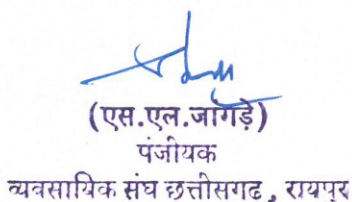 (एस.एल.जागड़े)
पंजीयक
व्यवसायिक संघ छत्तीसगढ , रायपुर